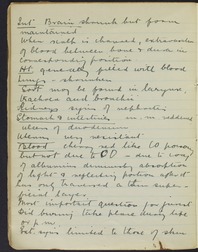 Int. Brain shrunk but form
maintained
When skull is charred, extravasation
of blood between bone & dura in
corresponding position
Ht. generally filled with blood
Lungs – shrunken
Soot may be found in larynx,
trachea and bronchi
Kidneys signs of nephritis
Stomach & intestines – m. m. reddened
ulcers of duodenum
Uterus very resistant
Blood cherry red like CO poison
but not due to CO – due to
of albumins diminishing absorption
of light & reflecting portion after it
has only traversed a thin super-
ficial layer
Most important question for jurist
Did burning take place during life
or p.m.
Ext. signs limited to those of skin